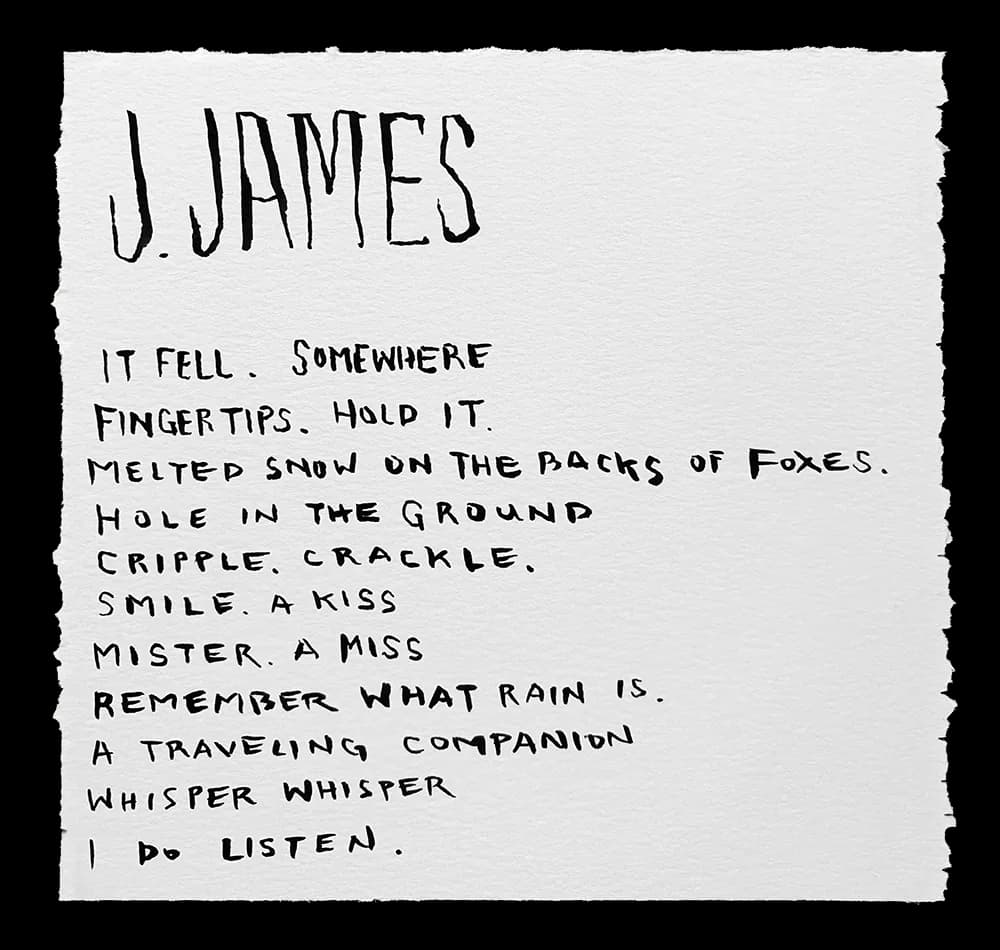 J. JAMES
IT FELL. SOMEWHERE
FINGERTIPS. HOLD IT.
MELTED SNOW ON THE BACKS OF FOXES.
HOLE IN THE GROUND
CRIPPLE. CRACKLE.
SMILE. A KISS
MISTER. A MISS
REMEMBER WHAT RAIN IS.
A TRAVELING COMPANION
WHISPER WHISPER
I DO LISTEN.